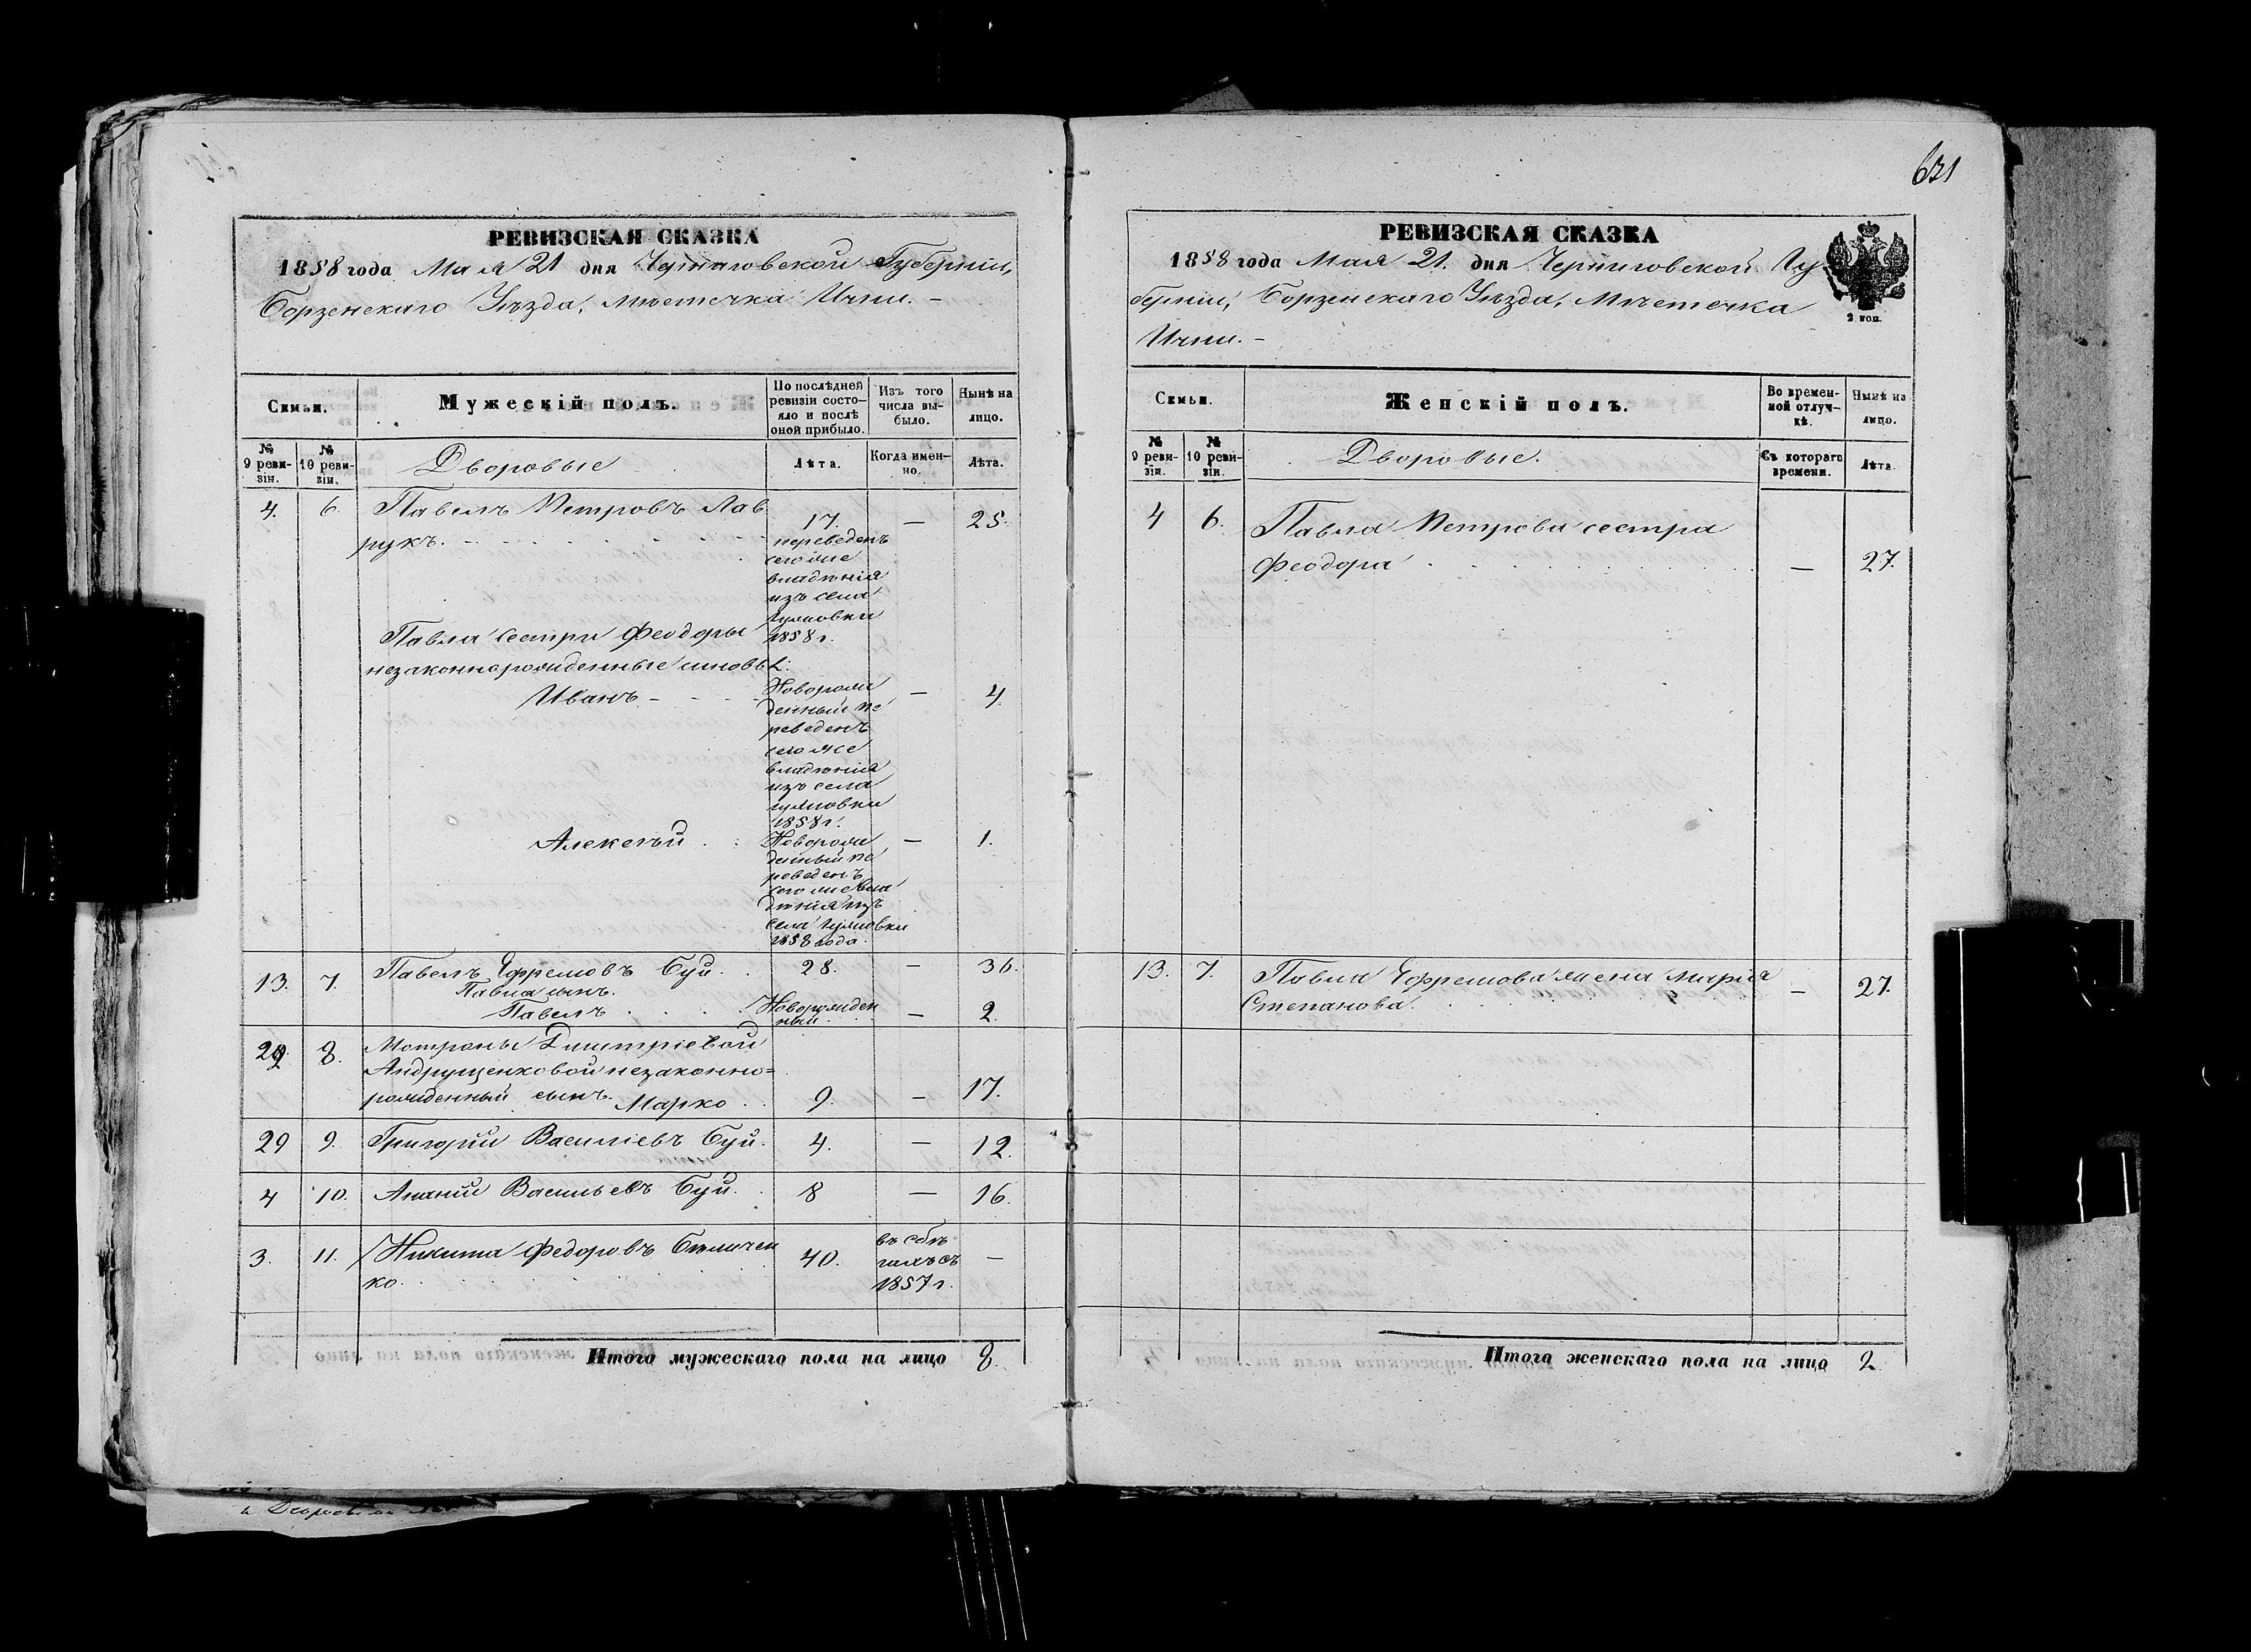 631
РЕВИЗСКАЯ СКАЗКА
1858 года Мая 21 дня Черниговской Губерніи,
Борзенскаго Уѣзда, мѣстечка Ични. –
Семьи.
Мужескій полъ.
По послѣдней ревизіи состо-яло и послѣ оной прибыло.
Изъ того числа вы-было.
Нынѣ на лицо.
№ 9 реви-зіи.
№ 10 реви-зіи.
Дворовые
Лѣта.
Когда имен-но.
Лѣта.
4. 6. Павелъ Петровъ Лав 17. — 25.
рукъ.
переведенъ
сегоже
владѣнія
изъ села
1858 г.
Павла сестри Феодоры
незаконнорожденные сыновья:
Иванъ – Новорож — 4.
денный пе
реведенъ
сегоже
владѣнія
изъ села
1858 г.
Алексѣй Новорож — 1.
денный пе
реведенъ
сегоже вла
дѣнія изъ
села
1858 года.
13. 7. Павелъ Ефремовъ Буй. 28. — 36.
Павла сынъ.
Павелъ Новорожден — 2.
ный.
8. Мотроны Дмитріевой
Андрущенковой незаконно=
рожденный сынъ. Марко 9. — 17.
29 9. Григорій Василіевъ Буй. 4. — 12.
4 10. Ананій Васильевъ Буй. 8 — 16.
3. 11. Никита Федоровъ Бѣличен 40. въ бѣ —
ко. гахъ съ
1857 г.
Итого мужескаго пола на лицо 8.
РЕВИЗСКАЯ СКАЗКА
1858 года Мая 21. дня Черниговской Гу
берніи, Борзенскаго Уѣзда, Мѣстечка
Ични. –
2 коп.
Семьи.
Женскій полъ.
Во времен-ной отлуч-кѣ.
Нынѣ на лицо.
№ 9 реви-зіи.
№ 10 реви-зіи.
Дворовые.
Съ котораго времени.
Лѣта.
4 6. Павла Петрова сестра
Феодора — 27.
13. 7. Павла Ефремова жена Марія
Степанова. — 27.
Итого женскаго пола на лицо 2.